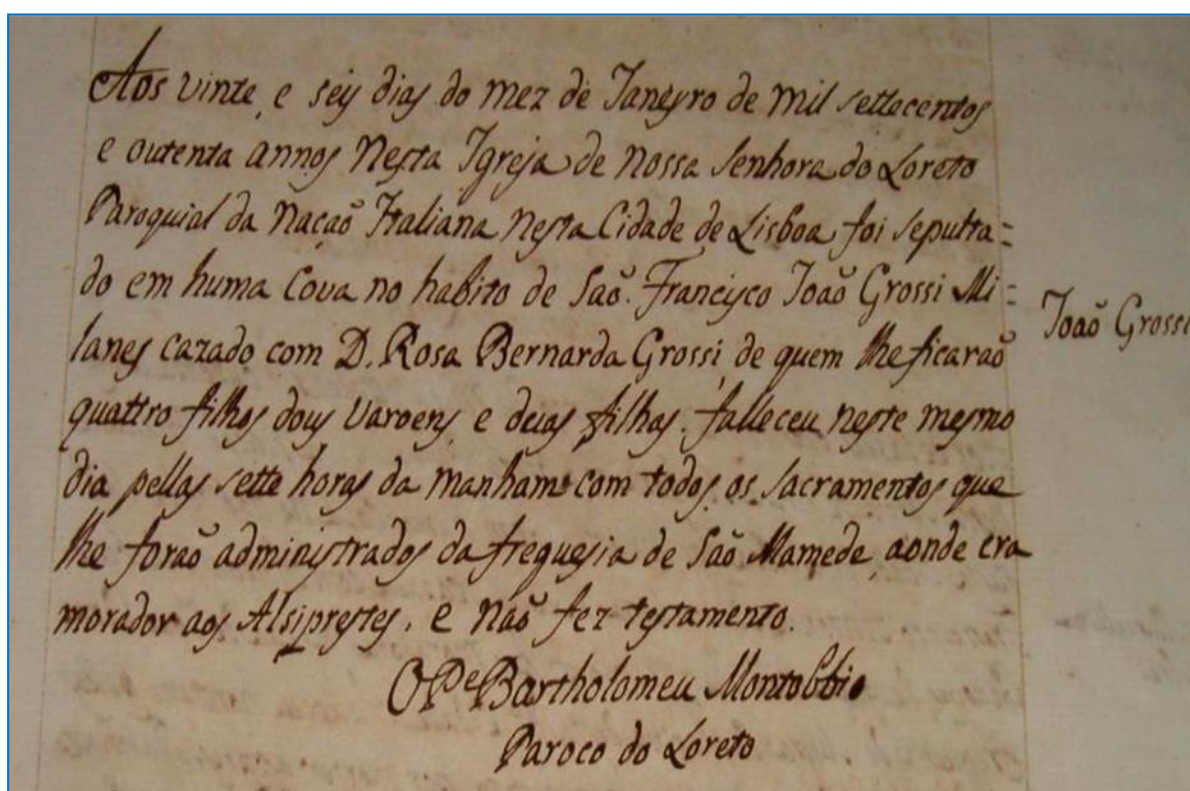 Aos vinte, e seis dias do mez de Janeyro de mil settecentos
e outenta annos nesta Igreja de Nossa Senhora do Loreto
Paroquial da Nação Italiana nesta Cidade de Lisboa foi sepulta=
do em huma Cova no habito de São. Francisco João Grossi Mi=
lanes cazado com D. Rosa Bernarda Grossi, de quem lhe ficarão
quattro filhos dous varoens, e duas filhas. falleceu neste mesmo
dia pellas sette horas da manham com todos os sacramentos que
lhe forão administrados da freguesia de São Mamede, aonde era
morador aos Alsiprestes, e não fez testamento.
O Pe Bartholomeu Montobbio
Paroco do Loreto
João Grossi